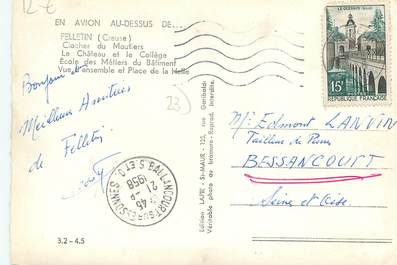 12 €
EN AVION AU-DESSUS DE...
FELLETIN (Creuse)
Clocher du Moutiers
Le Château et le Collège
École des Métiers du Bâtiment
Vue d'ensemble et Place de la Halle
Bonjour
Meilleures Amitiés
de Felletin
23
Edition LAPIE - St-MAUR - 125, rue Garibaldi
Véritable photo au bromure - Reprod. interdite.
LE QUESNOY
15F
REPUBLIQUE FRANÇAISE
Mr Edmont LANVIN
Tailleur de Pierre
BESSANCOURT
Seine et Oise
BALLANCOURT SUR ESSONNES
S. ET O.
45
21
1958
3.2 - 4.5